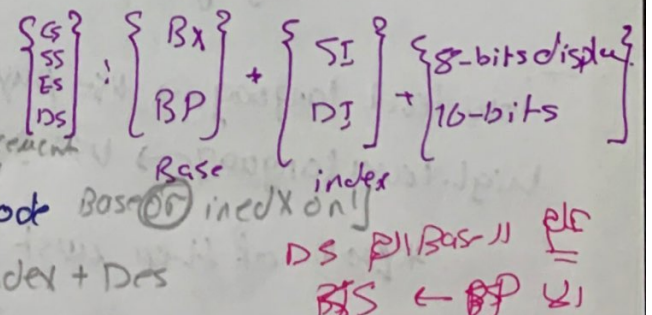 {CS SS ES DS} : {BX BP} + {SI DI} + {8-bits display 16-bits}
Base index
ode Base or inedX only
dex + Des
DS Base
← BP